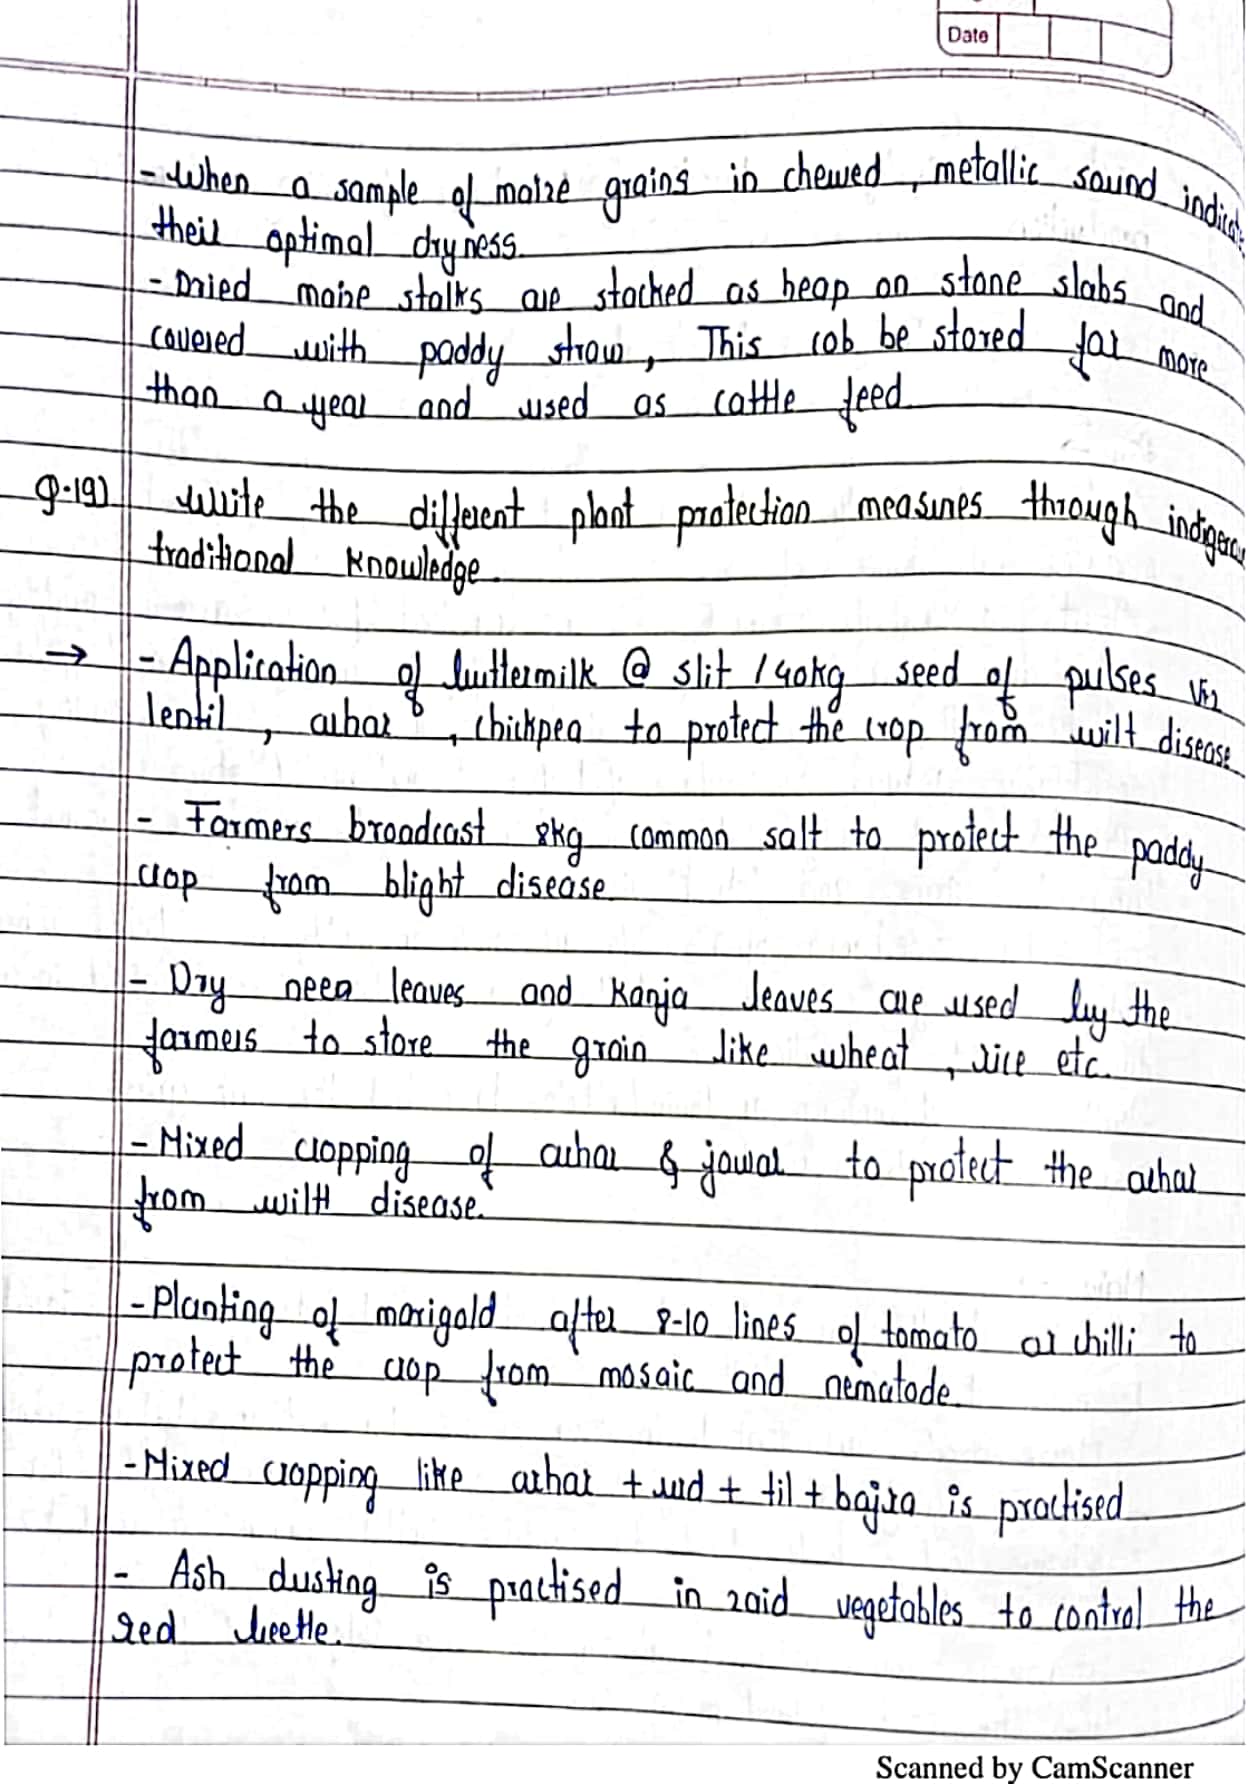 Date
- When a sample of maize grains in chewed, metallic sound indicate
their optimal dryness.
- Dried maize stalks are stacked as heap on stone slabs and
covered with paddy straw, This cob be stored for more
than a year and used as cattle feed
Q-19) Write the different plant protection measures through
traditional knowledge.
→ - Application of buttermilk @ 5lit / 40kg seed of pulses viz
lentil, arhar, chickpea to protect the crop from wilt disease
- Farmers broadcast 8kg common salt to protect the paddy
crop from blight disease.
- Dry neem leaves and Kanja leaves are used by the
farmers to store the grain like wheat, rice etc.
- Mixed cropping of arhar & jowar to protect the arhar
from wilt disease.
- Planting of marigold after 8-10 lines of tomato or chilli to
protect the crop from mosaic and nematode.
- Mixed cropping like arhar + urd + til + bajra is practised
- Ash dusting is practised in zaid vegetables to control the
red beetle.
Scanned by CamScanner